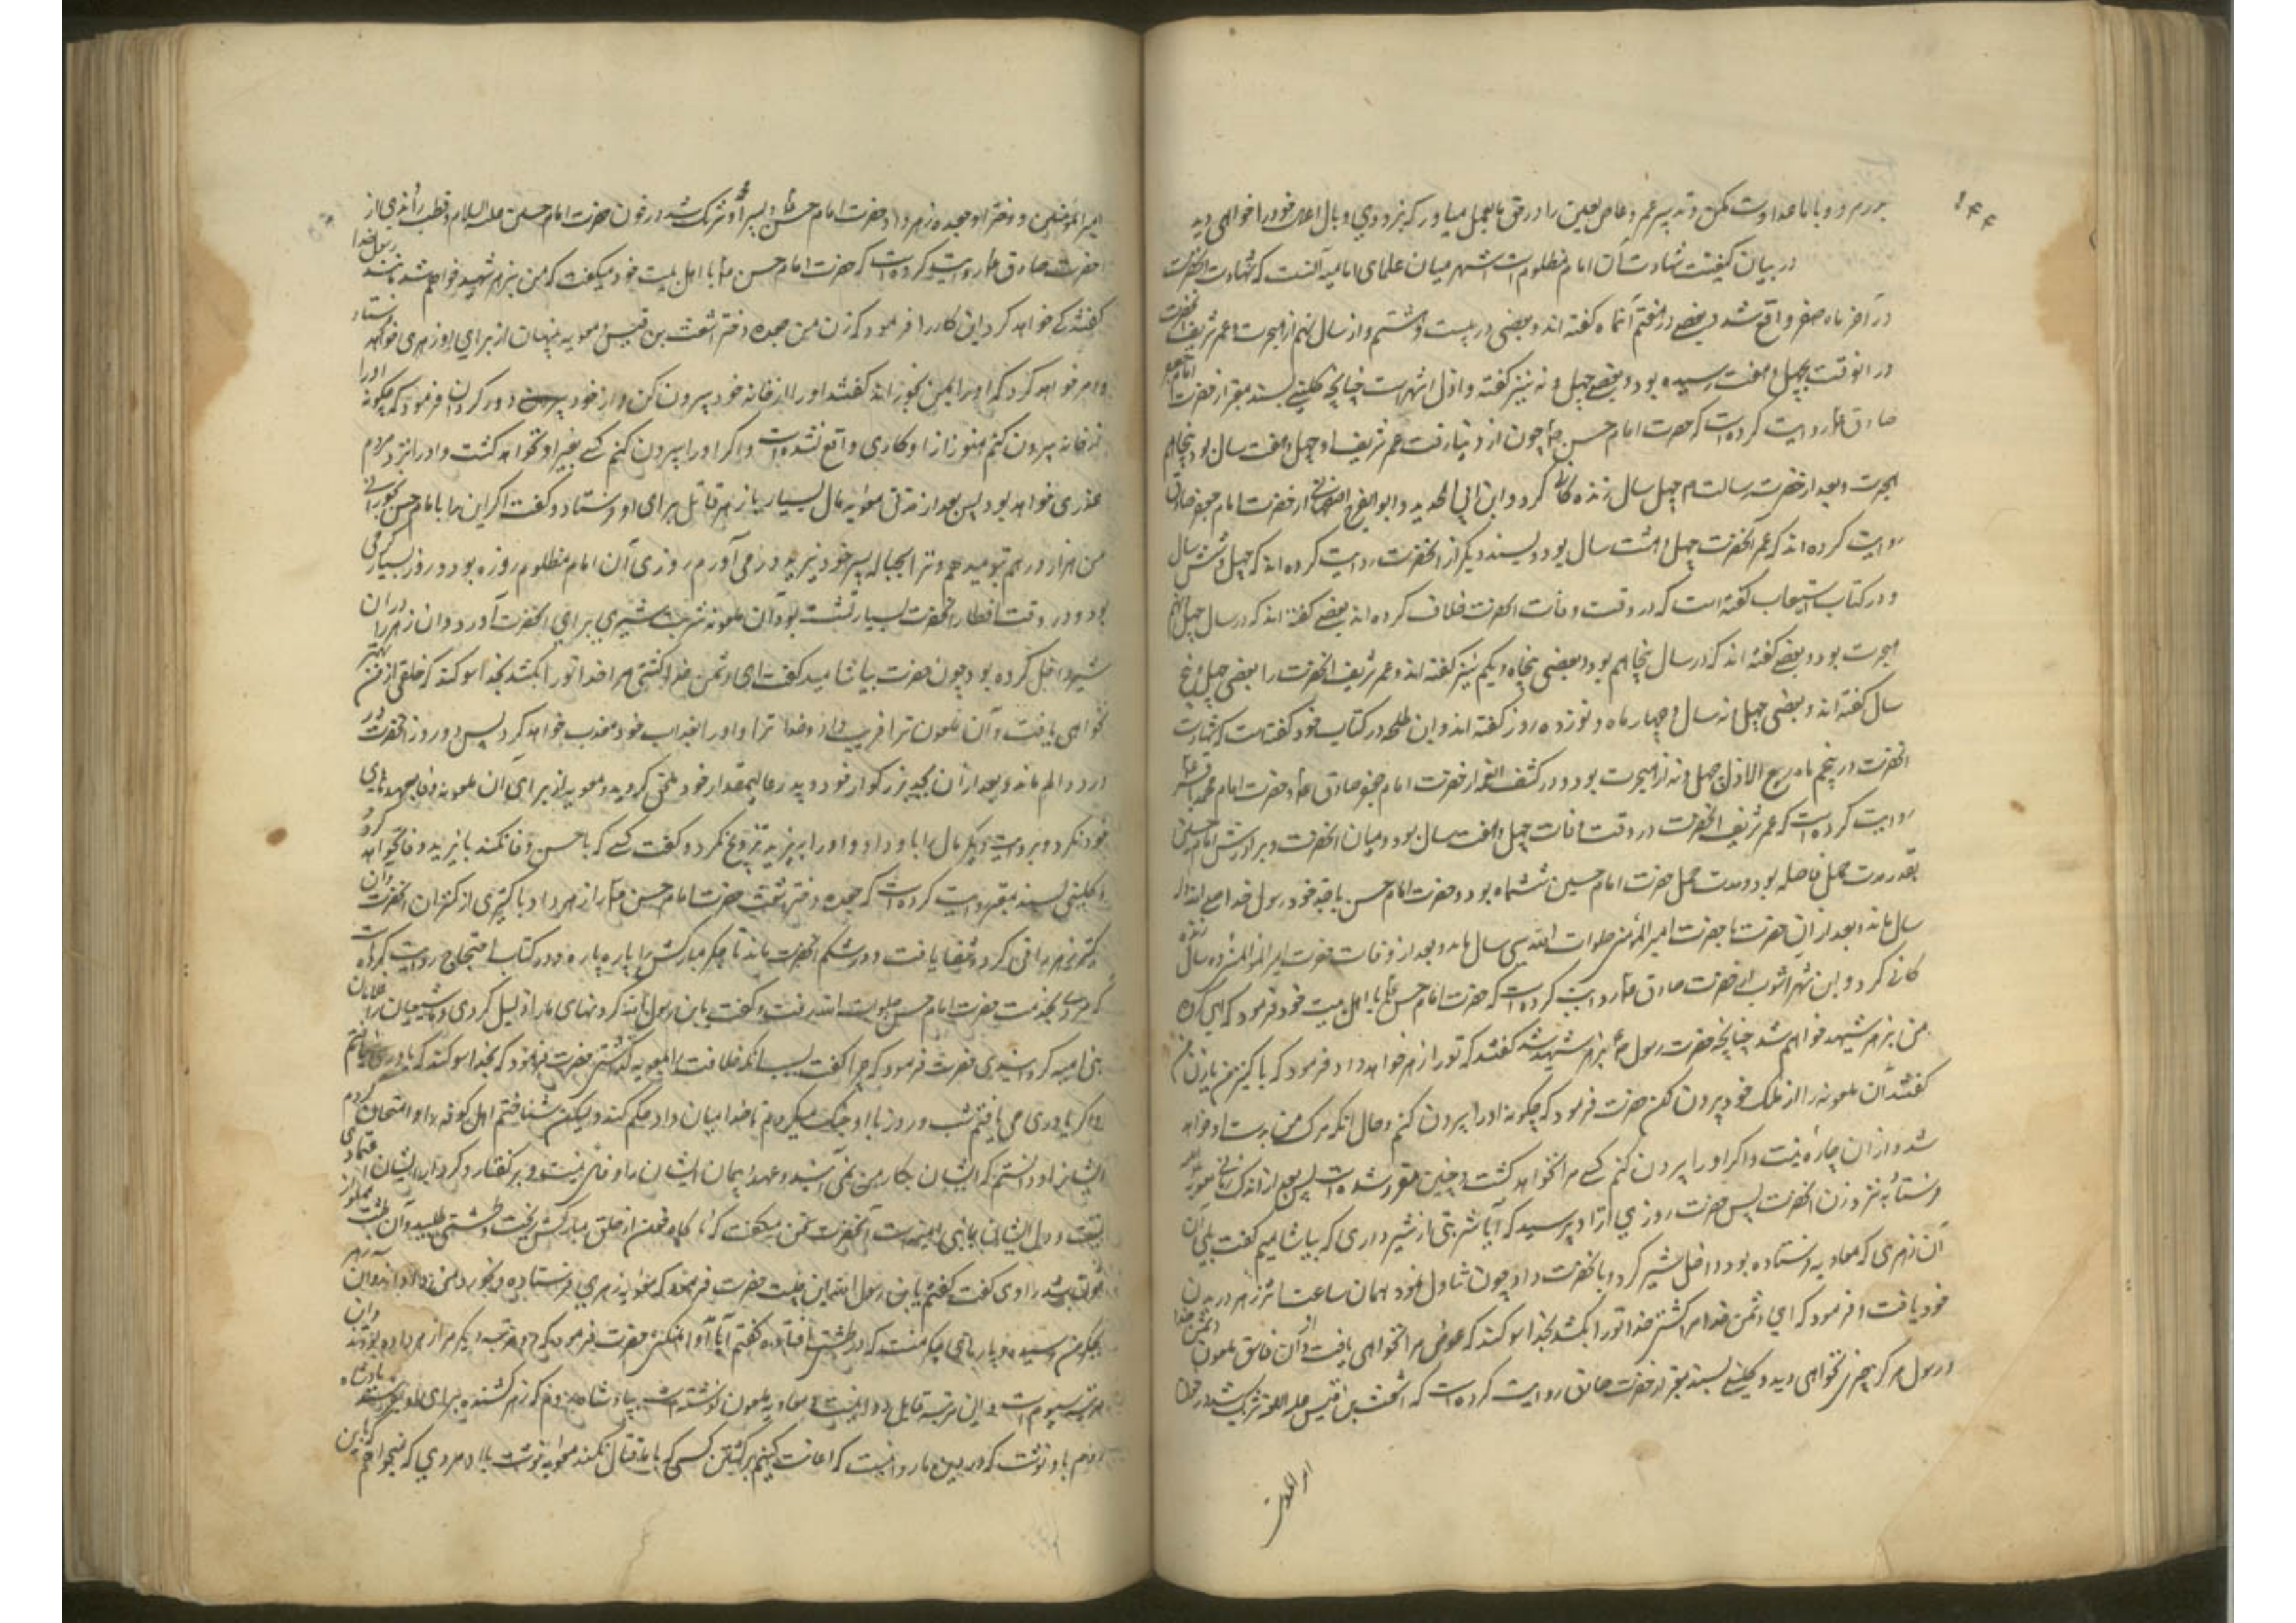 ۱۴۴
و با ما عداوت مکن و تدبیر عمرو عاص لعین را در حق ما بعمل میاور که بزودی وبال اعمال خود را خواهی دید
در بیان کیفیت شهادت آن امام مظلوم است اشهر میان علمای امامیه آنست که شهادت آنحضرت
در آخر ماه صفر واقع شد و بعضی در هفتم آنماه گفته اند و بعضی در بیست و هشتم و از سال نهم از هجرت و عمر شریف آنحضرت
در آنوقت بچهل و هفت رسیده بود و بعضی چهل و نه نیز گفته و اول اشهر است چنانچه کلینی بسند معتبر از حضرت امام جعفر
صادق ع روایت کرده است که حضرت امام حسن ع چون از دنیا رفت عمر شریف او چهل و هفت سال بود پنجاهم
هجرت و بعد از حضرت رسالت ص چهل سال زنده گانی کرد و ابن ابی الحدید و ابو الفرج اصفهانی از حضرت امام جعفر صادق
روایت کرده اند که عمر آنحضرت چهل و هشت سال بود و بسند دیگر از آنحضرت روایت کرده اند که چهل و شش سال
و در کتاب استیعاب گفته است که در وقت وفات آنحضرت خلاف کرده اند بعضی گفته اند که در سال چهل و نهم
هجرت بود و بعضی گفته اند که در سال پنجاهم بود و بعضی پنجاه و یکم نیز گفته اند و عمر شریف آنحضرت را بعضی چهل و پنج
سال گفته اند و بعضی چهل و نه سال و چهار ماه و نوزده روز گفته اند و ابن طلحه در کتاب خود گفته است که شهادت
آنحضرت در پنجم ماه ربیع الاول چهل و نه از هجرت بود و در کشف الغمه از حضرت امام جعفر صادق ع و حضرت امام محمد باقر ع
روایت کرده است که عمر شریف آنحضرت در وقت وفات چهل و هفت سال بود و میان آنحضرت و برادرش امام حسین
بقدر مدت حمل فاصله بود و مدت حمل حضرت امام حسین ششماه بود و حضرت امام حسن با جد خود رسول خدا
سال ماند و بعد از آن حضرت با حضرت امیر المؤمنین صلوات الله سی سال ماند و بعد از وفات حضرت امیر المؤمنین ده سال زنده
گانی کرد و ابن شهر آشوب از حضرت صادق ع روایت کرده است که حضرت امام حسن ع با اهل بیت خود فرمود که
من بزهر شهید خواهم شد چنانچه حضرت رسول ص بزهر شهید شد گفتند که تو را زهر خواهد داد فرمود که یا کنیز من یا زن من
گفتند آن ملعونه را از ملک خود بیرون کن حضرت فرمود که چگونه او را بیرون کنم و حال آنکه مرگ من بدست او خواهد
شد و از آن چاره نیست و اگر او را بیرون کنم کسی مرا نخواهد کشت و چنین مقرر شده است پس بعد از اندک زمانی معویه زهر
فرستاد بنزد زن آنحضرت پس حضرت روزی از او پرسید که آیا شربتی از شیر داری که بیاشامیم گفت بلی آن
آن زهری که معاویه فرستاده بود داخل شیر کرد و بآنحضرت داد چون تناول نمود همان ساعت اثر زهر در بدن
خود یافت و فرمود که ای دشمن خدا مرا کشتی خدا تو را بکشد بخدا سوگند که عوض مرا نخواهی یافت و از آن فاسق ملعون دشمن خدا
و رسول هرگز چیزی نخواهی دید و کلینی بسند معتبر از حضرت صادق روایت کرده است که اشعث بن قیس علیه اللعنه شریک شد در خون
امیر المؤمنین
امیر المؤمنین و دختر او جعده زهر داد حضرت امام حسن ع و پسر او محمد شریک شد در خون حضرت امام حسین علیه السلام و قطب راوندی از
حضرت صادق ع روایت کرده است که حضرت امام حسن ع با اهل بیت خود میگفت که من بزهر شهید خواهم شد مانند رسول خدا
گفتند که خواهد کرد این کار را فرمود که زن من جعده دختر اشعث بن قیس و معویه پنهان از برای او زهری خواهد فرستاد
و امر خواهد کرد که او را بمن بخوراند گفتند او را از خانه خود بیرون کن و از خود دور گردان فرمود که چگونه او را
از خانه بیرون کنم هنوز از او کاری واقع نشده است و اگر او را بیرون کنم کسی بغیر او نخواهد کشت و او را نزد مردم
عذری خواهد بود پس بعد از مدتی معویه مال بسیار با زهر قاتل برای او فرستاد و گفت اگر این را بامام حسن بخورانی
من هزار درهم بتو میدهم و ترا بحباله پسر خود یزید در می آورم روزی آن امام مظلوم روزه بود و روز بسیار گرمی
بود و در وقت افطار آنحضرت بسیار تشنه بود آن ملعونه شربت شیری برای آنحضرت آورد و آن زهر را در آن
شیر داخل کرده بود چون حضرت بیاشامید گفت ای دشمن خدا کشتی مرا خدا تو را بکشد بخدا سوگند که خلقی از من بهتر
نخواهی یافت و آن ملعون ترا فریب داد و خدا ترا و او را بعذاب خود معذب خواهد کرد پس دو روز آنحضرت در
درد و الم ماند و بعد از آن بجد بزرگوار خود و پدر عالیمقدار خود ملحق گردید و معویه از برای آن ملعونه وفا بعهدهای
خود نکرد و بروایت دیگر مال را باو داد و او را به یزید تزویج نکرد و گفت کسی که با حسن وفا نکند با یزید وفا نخواهد کرد
و کلینی بسند معتبر روایت کرده است که جعده دختر اشعث حضرت امام حسن ع را زهر داد با کنیزی از کنیزان آنحضرت و آن
کنیز زهر را قی کرد و شفا یافت و در شکم آنحضرت ماند تا جگر مبارکش را پاره پاره و در کتاب احتجاج روایت کرده است
که مردی بخدمت حضرت امام حسن صلوات الله رفت و گفت یا بن رسول الله گردنهای ما را ذلیل کردی و ما شیعیان را غلامان
بنی امیه گردانیدی حضرت فرمود که چرا گفت بسبب آنکه خلافت را بمعویه گذاشتی حضرت فرمود که بخدا سوگند که یاوری نیافتم
و اگر یاوری می یافتم شب و روز با او جنگ میکردم تا خدا میان ما و او حکم کند و لیکن شناختم اهل کوفه را و امتحان کردم
ایشان را و دانستم که ایشان بکار من نمی آیند و عهد و پیمان ایشان را وفائی نیست و بر گفتار و کردار ایشان اعتمادی
نیست و دل ایشان با بنی امیه است آنحضرت سخن میگفت که ناگاه خون از حلق مبارکش ریخت و طشتی طلبید و آن طشت مملو از
خون شد راوی گفت گفتم یا بن رسول الله این چیست حضرت فرمود که معویه زهری فرستاده و بخورد من داده اند و آن زهر
بجگر من رسیده و پارهای جگر منست که در طشت افتاده گفتم آیا مداوا نمیکنی حضرت فرمود که دو مرتبه دیگر مرا زهر داده بودند و این
مرتبه سیوم است و این مرتبه قابل دوا نیست و معاویه ملعون نوشته است بپادشاه روم که زهر کشنده برای او بفرستد پادشاه
روم باو نوشت که در دین ما روا نیست که اعانت کنیم بر کشتن کسی که با ما قتال نکند معویه نوشت باو مردی که میخواهم باین